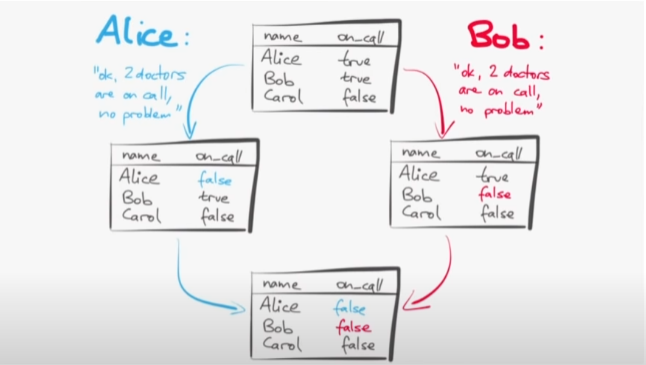 Alice:
"ok, 2 doctors
are on call,
no problem"
name on_call
Alice true
Bob true
Carol false
Bob:
"ok, 2 doctors
are on call,
no problem"
name on_call
Alice false
Bob true
Carol false
name on_call
Alice true
Bob false
Carol false
name on_call
Alice false
Bob false
Carol false